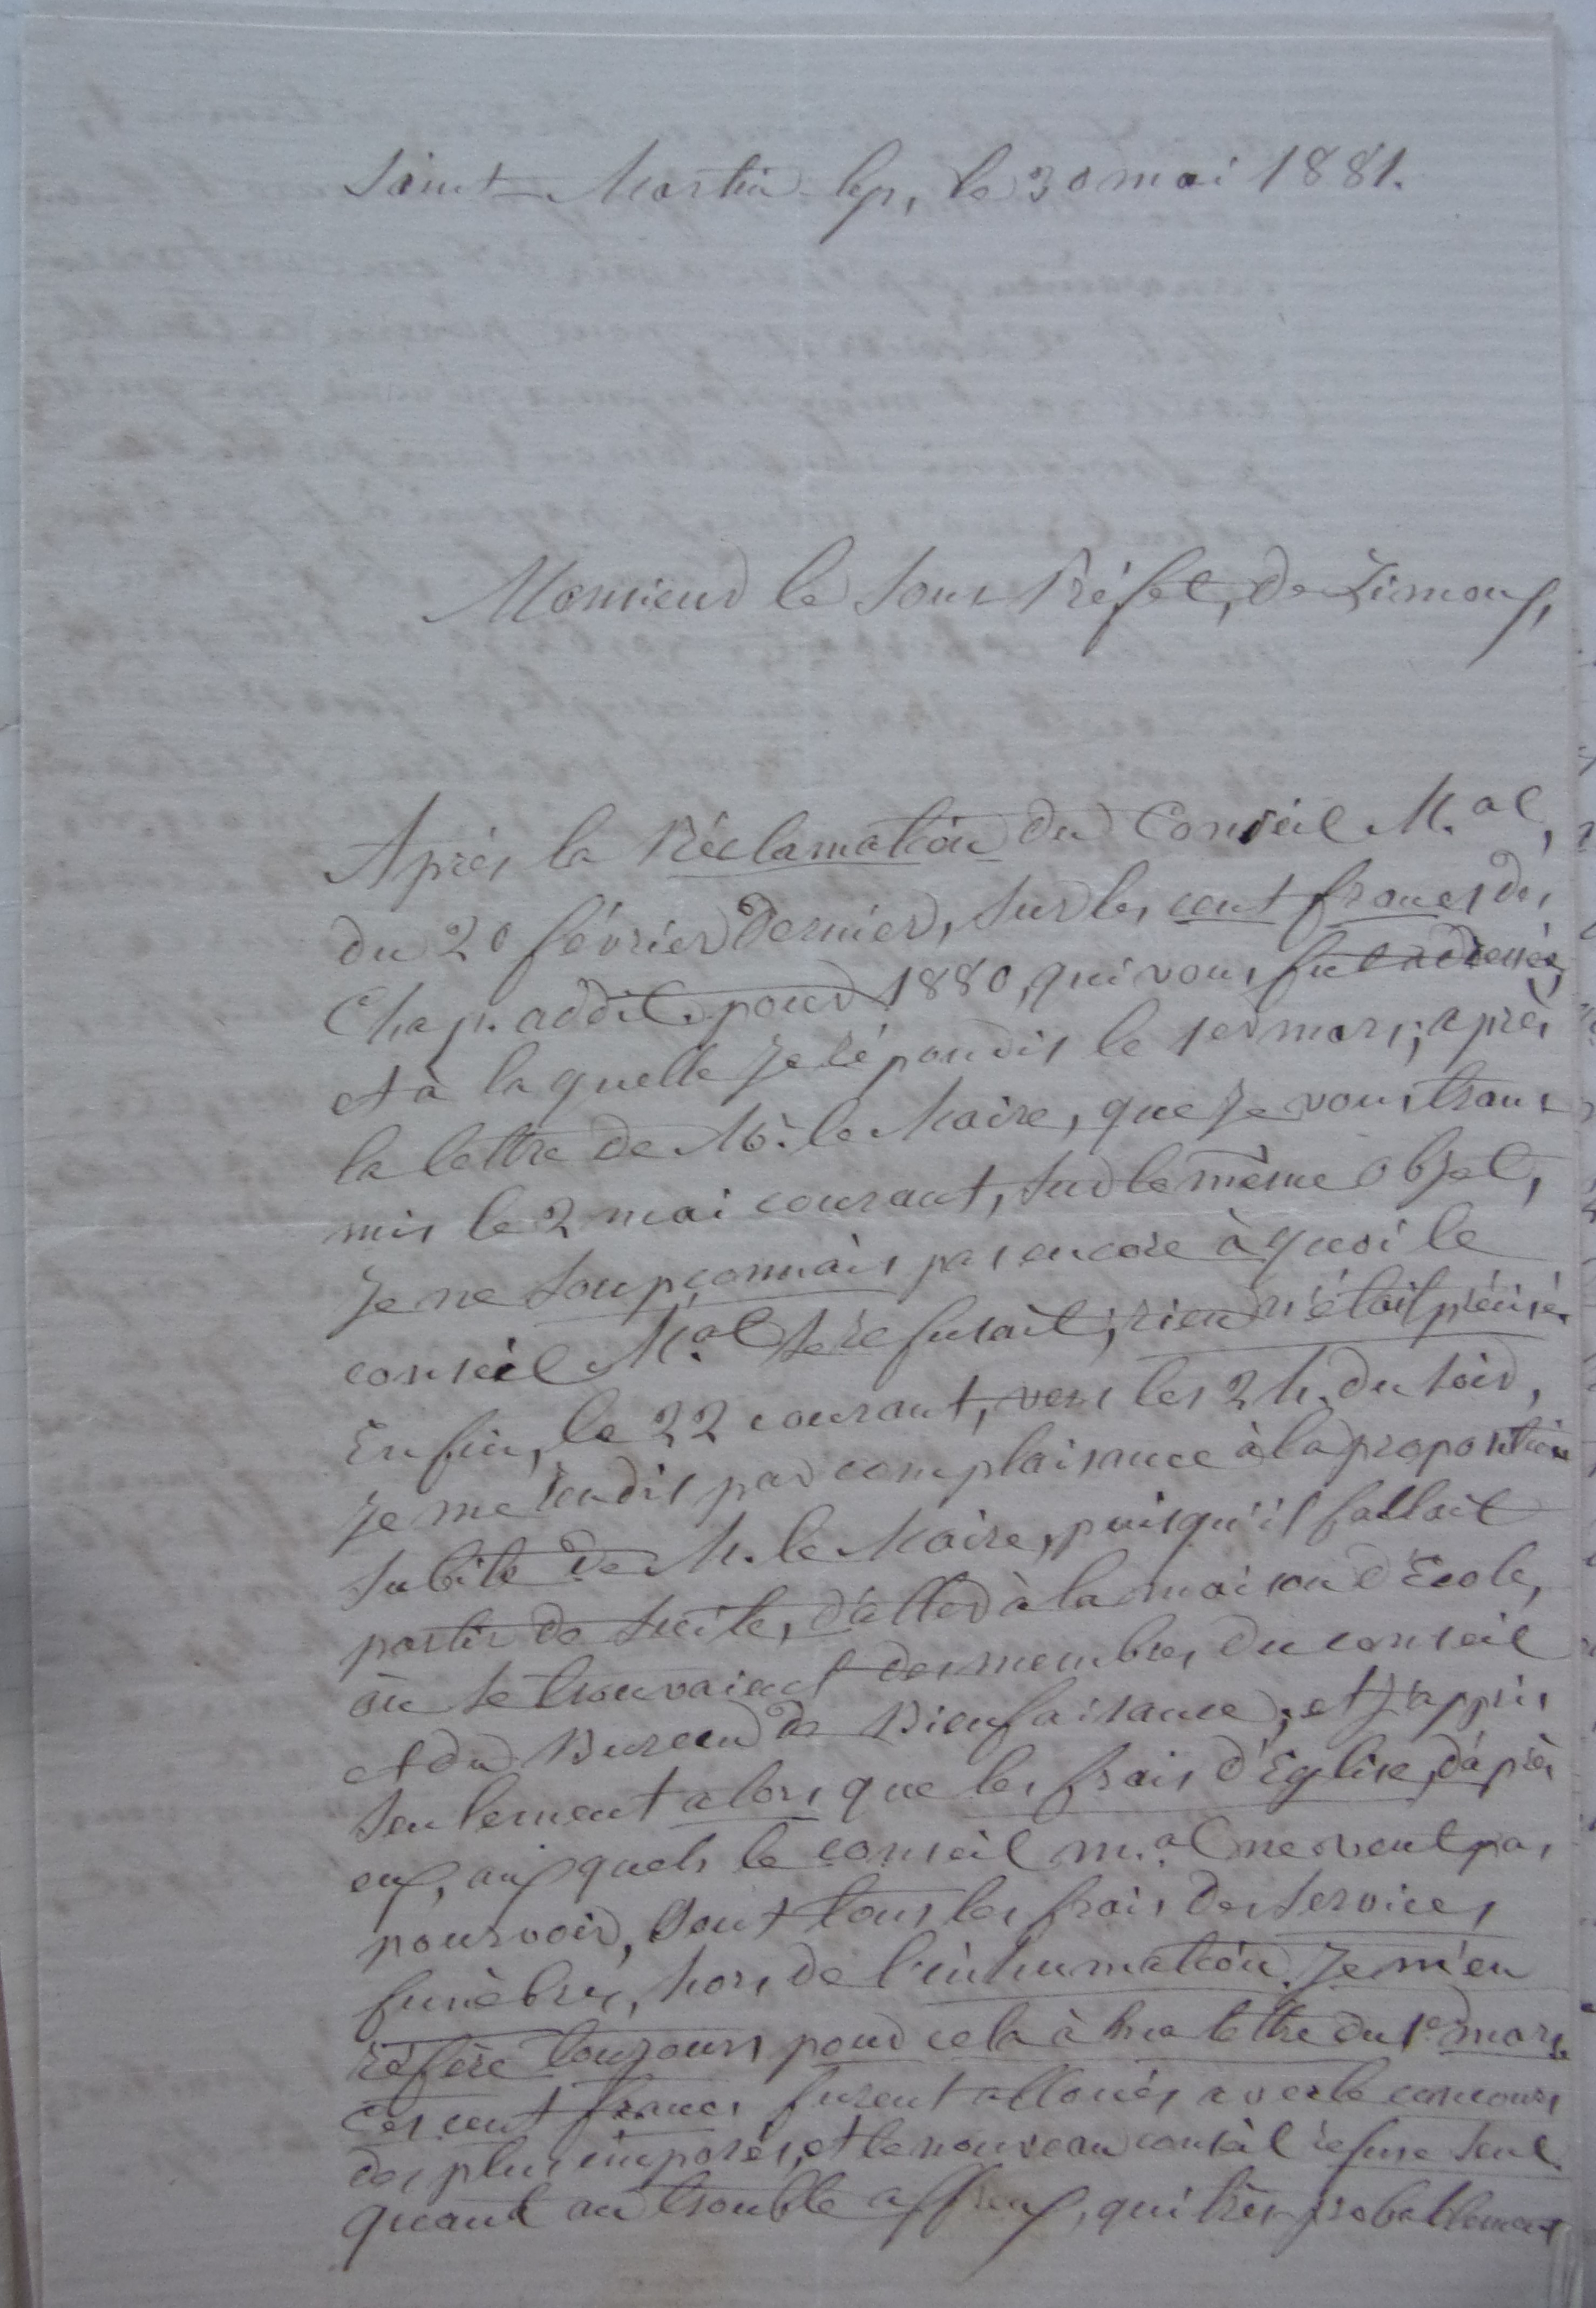 Saint-Martin-lys, le 30 mai 1881.
Monsieur le Sous Préfet, de Limoux,
Après la Réclamation du Conseil M.al,
du 20 février Dernier, sur les cent francs des
Chap. addit. pour 1880, qui vous fut adressée,
et à laquelle je répondis le 1er mars; après
la lettre de Mr. le Maire, que je vous trans
mis le 2 mai courant, sur le même objet,
je ne soupçonnais pas encore à quoi le
conseil M.al se refusait; rien n'était précisé.
Enfin, le 22 courant, vers les 2 h. du soir,
je me rendis par complaisance à la proposition
subite de M. le Maire, puisqu'il fallait
partir de suite, d'aller à la maison d'Ecole,
où se trouvaient des membres du conseil
et du Bureau de Bienfaisance; et j'appris
seulement alors que les frais d'Eglise, d'après
eux, auxquels le conseil m.al ne veut pas
pourvoir, sont tous les frais des services
funèbres, hors de l'inhumation. Je m'en
réfère toujours pour cela à ma lettre du 1er mars
Ces cent francs furent alloués avec le concours
des plus imposés, et le nouveau conseil refuse seul.
quant au trouble affreux, qui très probablement